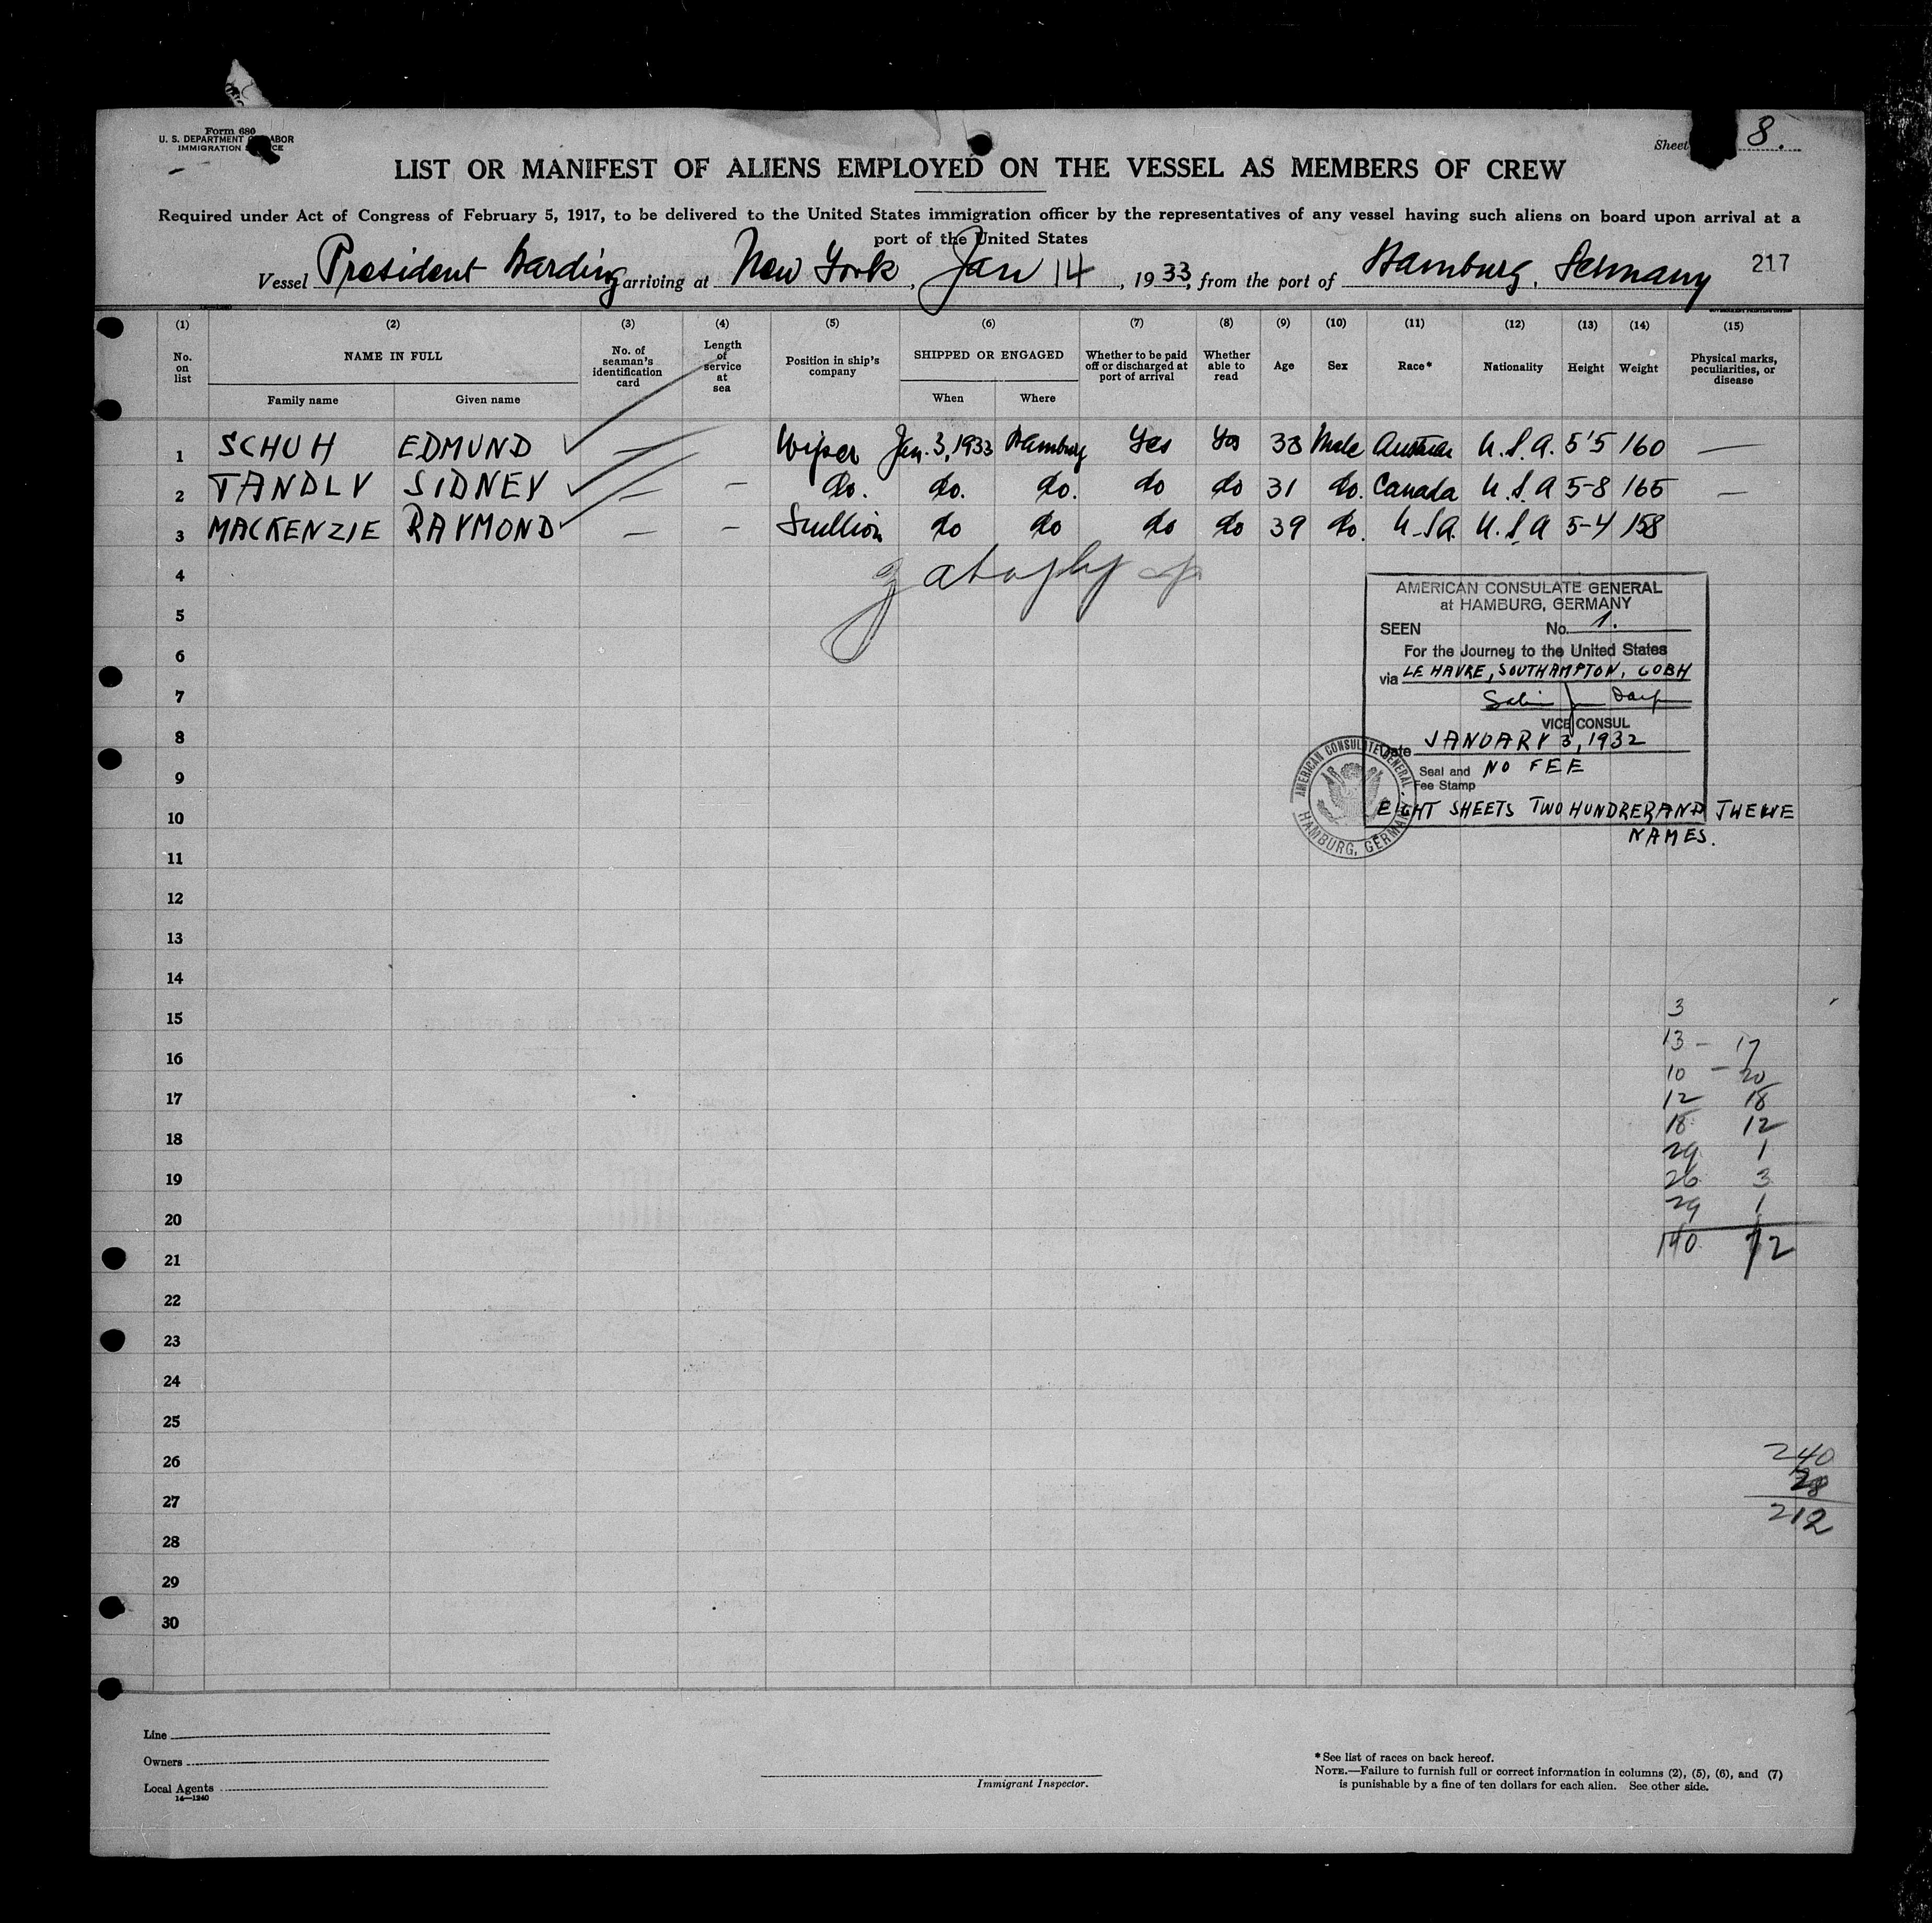 Form 680
U. S. DEPARTMENT OF LABOR
IMMIGRATION SERVICE
Sheet 8.
LIST OR MANIFEST OF ALIENS EMPLOYED ON THE VESSEL AS MEMBERS OF CREW
Required under Act of Congress of February 5, 1917, to be delivered to the United States immigration officer by the representatives of any vessel having such aliens on board upon arrival at a
port of the United States
Vessel President Harding arriving at New York, Jan 14, 1933, from the port of Hamburg, Germany 217
(1) (2) (3) (4) (5) (6) (7) (8) (9) (10) (11) (12) (13) (14) (15)
No. on list NAME IN FULL No. of seaman's identification card Length of service at sea Position in ship's company SHIPPED OR ENGAGED Whether to be paid off or discharged at port of arrival Whether able to read Age Sex Race* Nationality Height Weight Physical marks, peculiarities, or disease
Family name Given name When Where
1 SCHUH EDMUND — Wiper Jan. 3, 1933 Hamburg Yes Yes 33 Male Austrian U.S.A. 5'5 160 —
2 TANDLY SIDNEY — — do. do. do. do do 31 do. Canada U.S.A 5-8 165 —
3 MACKENZIE RAYMOND — — Scullion do do do do 39 do. U.S.A. U.S.A 5-4 158
4
5
6
7
8
9
10
11
12
13
14
15
16
17
18
19
20
21
22
23
24
25
26
27
28
29
30
AMERICAN CONSULATE GENERAL
at HAMBURG, GERMANY
SEEN No. 1.
For the Journey to the United States
via LE HAVRE, SOUTHAMPTON, COBH
VICE CONSUL
Date JANUARY 3, 1932
Seal and NO FEE
Fee Stamp
EIGHT SHEETS TWO HUNDRED AND TWELVE
NAMES.
AMERICAN CONSULATE GENERAL
HAMBURG, GERMANY
3
13 — 17
10 — 20
12 18
18 12
29 1
26 3
29 1
140 72
240
28
212
Line
Owners
Local Agents
14—1240
Immigrant Inspector.
*See list of races on back hereof.
NOTE.—Failure to furnish full or correct information in columns (2), (5), (6), and (7)
is punishable by a fine of ten dollars for each alien. See other side.